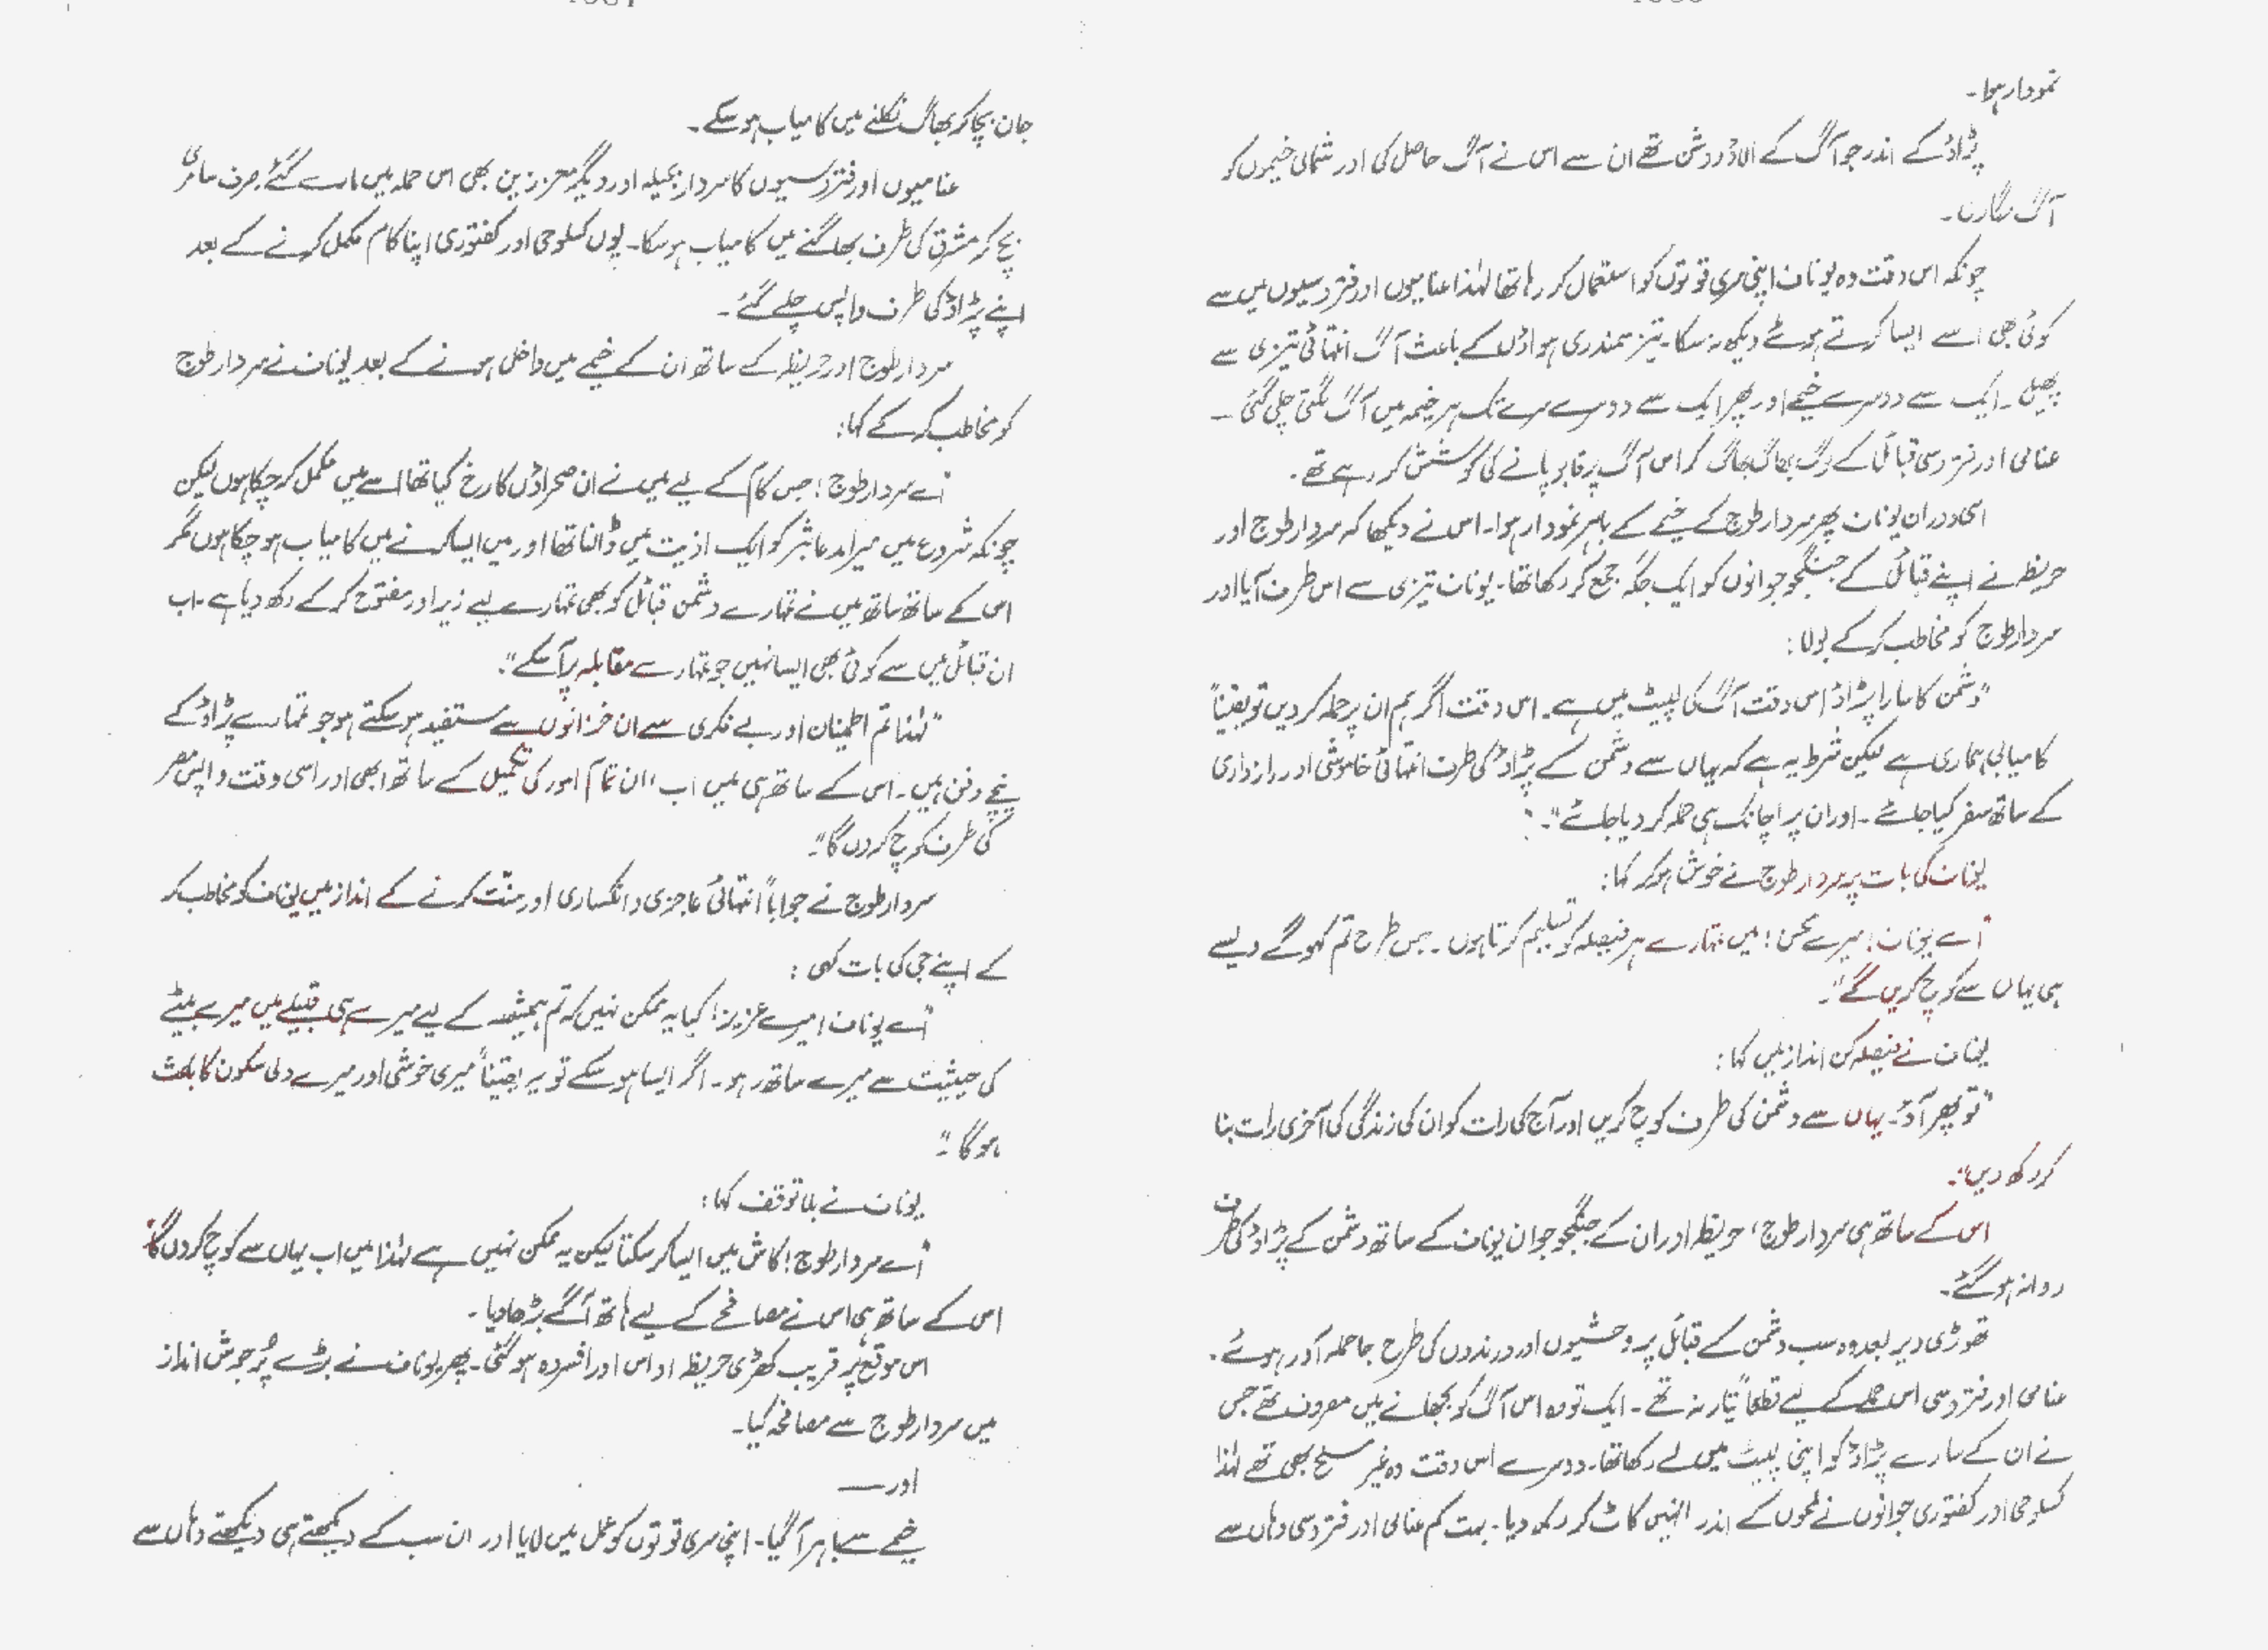 نمودار ہوا۔
پڑاؤ کے اندر جو آگ کے الاؤ روشن تھے ان سے اس نے آگ حاصل کی اور شمالی خیموں کو
آگ لگا دی۔
چونکہ اس وقت وہ یوناف اپنی سری قوتوں کو استعمال کر رہا تھا لہٰذا عنامیوں اور فتروسیوں میں سے
کوئی بھی اسے ایسا کرتے ہوئے دیکھ نہ سکا۔ تیز سمندری ہواؤں کے باعث آگ انتہائی تیزی سے
پھیلی۔ ایک سے دوسرے خیمے اور پھر ایک سے دوسرے سرے تک ہر خیمہ میں آگ لگتی چلی گئی۔
عنامی اور فتروسی قبائل کے لوگ بھاگ بھاگ کر اس آگ پر قابو پانے کی کوشش کر رہے تھے۔
اسی دوران یوناف پھر سردار طوج کے خیمے کے باہر نمودار ہوا۔ اس نے دیکھا کہ سردار طوج اور
حریظ نے اپنے قبائل کے جنگجو جوانوں کو ایک جگہ جمع کر رکھا تھا۔ یوناف تیزی سے اس طرف آیا اور
سردار طوج کو مخاطب کر کے بولا:
"دشمن کا سارا پڑاؤ اس وقت آگ کی لپیٹ میں ہے۔ اس وقت اگر ہم ان پر حملہ کر دیں تو یقیناً
کامیابی ہماری ہے لیکن شرط یہ ہے کہ یہاں سے دشمن کے پڑاؤ کی طرف انتہائی خاموشی اور رازداری
کے ساتھ سفر کیا جائے۔ اور ان پر اچانک ہی حملہ کر دیا جائے"۔
یوناف کی بات پر سردار طوج نے خوش ہو کر کہا:
"اے یوناف! میرے محسن! میں تمہارے ہر فیصلہ کو تسلیم کرتا ہوں۔ جس طرح تم کہو گے ویسے
ہی یہاں سے کوچ کریں گے"۔
یوناف نے فیصلہ کن انداز میں کہا:
"تو پھر آؤ۔ یہاں سے دشمن کی طرف کوچ کریں اور آج کی رات کو ان کی زندگی کی آخری رات بنا
کر رکھ دیں"۔
اس کے ساتھ ہی سردار طوج، حریظ اور ان کے جنگجو جوان یوناف کے ساتھ دشمن کے پڑاؤ کی طرف
روانہ ہو گئے۔
تھوڑی دیر بعد وہ سب دشمن کے قبائل پر وحشیوں اور درندوں کی طرح جا حملہ آور ہوئے۔
عنامی اور فتروسی اس حملے کے لیے قطعاً تیار نہ تھے۔ ایک تو وہ اس آگ کو بجھانے میں مصروف تھے جس
نے ان کے سارے پڑاؤ کو اپنی لپیٹ میں لے رکھا تھا۔ دوسرے اس وقت وہ غیر مسلح بھی تھے لہٰذا
کسلوحی اور کفتوری جوانوں نے لمحوں کے اندر انہیں کاٹ کر رکھ دیا۔ بہت کم عنامی اور فتروسی وہاں سے
جان بچا کر بھاگ نکلنے میں کامیاب ہو سکے۔
عنامیوں اور فتروسیوں کا سردار بحیلہ اور دیگر معززین بھی اس حملہ میں مارے گئے۔ صرف سائر ہی
بچ کر مشرق کی طرف بھاگنے میں کامیاب ہو سکا۔ یوں کسلوحی اور کفتوری اپنا کام مکمل کرنے کے بعد
اپنے پڑاؤ کی طرف واپس چلے گئے۔
سردار طوج اور حریظ کے ساتھ ان کے خیمے میں داخل ہونے کے بعد یوناف نے سردار طوج
کو مخاطب کر کے کہا:
"اے سردار طوج! جس کام کے لیے میں نے ان صحراؤں کا رخ کیا تھا اسے میں مکمل کر چکا ہوں لیکن
چونکہ شروع میں میرا مدعا شبر کو ایک اذیت میں ڈالنا تھا اور میں ایسا کرنے میں کامیاب ہو چکا ہوں مگر
اس کے ساتھ ساتھ میں نے تمہارے دشمن قبائل کو بھی تمہارے لیے زیر اور مفتوح کر کے رکھ دیا ہے۔ اب
ان قبائل میں سے کوئی بھی ایسا نہیں جو تمہارے مقابلہ پر آ سکے"۔
"لہٰذا تم اطمینان اور بے فکری سے ان خزانوں سے مستفید ہو سکتے ہو جو تمہارے پڑاؤ کے
نیچے دفن ہیں۔ اس کے ساتھ ہی میں اب ان تمام امور کی تکمیل کے ساتھ ابھی اور اسی وقت واپس مصر
کی طرف کوچ کروں گا"۔
سردار طوج نے جواباً انتہائی عاجزی و انکساری اور منت کرنے کے انداز میں یوناف کو مخاطب کر
کے اپنے جی کی بات کہی:
"اے یوناف! میرے عزیز! کیا یہ ممکن نہیں کہ تم ہمیشہ کے لیے میرے ہی قبیلے میں میرے بیٹے
کی حیثیت سے میرے ساتھ رہو۔ اگر ایسا ہو سکے تو یہ یقیناً میری خوشی اور میرے دلی سکون کا باعث
ہو گا"۔
یوناف نے بلا توقف کہا:
"اے سردار طوج! کاش میں ایسا کر سکتا لیکن یہ ممکن نہیں ہے لہٰذا میں اب یہاں سے کوچ کروں گا"
اس کے ساتھ ہی اس نے مصافحے کے لیے ہاتھ آگے بڑھا دیا۔
اس موقع پر قریب کھڑی حریظ اداس اور افسردہ ہو گئی۔ پھر یوناف نے بڑے پُر جوش انداز
میں سردار طوج سے مصافحہ کیا۔
اور—
خیمے سے باہر آ گیا۔ اپنی سری قوتوں کو عمل میں لایا اور ان سب کے دیکھتے ہی دیکھتے وہاں سے